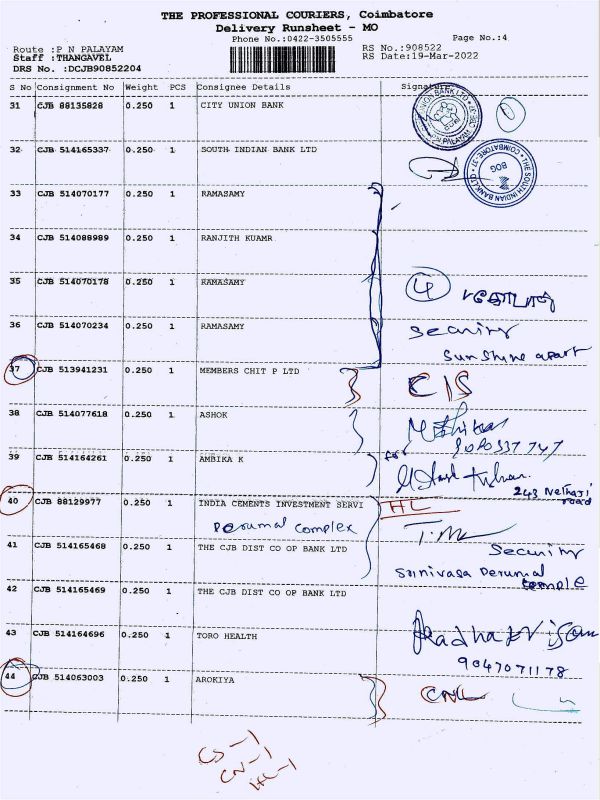 THE PROFESSIONAL COURIERS, Coimbatore
Delivery Runsheet - MO
Phone No.:0422-3505555
Page No.:4
Route :P N PALAYAM
RS No.:908522
Staff :THANGAVEL
RS Date:19-Mar-2022
DRS No. :DCJB90852204
S No Consignment No Weight PCS Consignee Details Signature
31 CJB 88135828 0.250 1 CITY UNION BANK
32 CJB 514165337 0.250 1 SOUTH INDIAN BANK LTD
THE SOUTH INDIAN BANK LTD
COIMBATORE - 37
BOG
33 CJB 514070177 0.250 1 RAMASAMY
34 CJB 514088989 0.250 1 RANJITH KUAMR
35 CJB 514070178 0.250 1 RAMASAMY
4
36 CJB 514070234 0.250 1 RAMASAMY
Security
Sunshine apart
37 CJB 513941231 0.250 1 MEMBERS CHIT P LTD
C/S
38 CJB 514077618 0.250 1 ASHOK
39 CJB 514164261 0.250 1 AMBIKA K
for
243 Nethaji
road
40 CJB 88129977 0.250 1 INDIA CEMENTS INVESTMENT SERVI
HL
Perumal complex
41 CJB 514165468 0.250 1 THE CJB DIST CO OP BANK LTD
Security
Srinivasa Perumal
temple
42 CJB 514165469 0.250 1 THE CJB DIST CO OP BANK LTD
43 CJB 514164696 0.250 1 TORO HEALTH
9047071178
44 CJB 514063003 0.250 1 AROKIYA
CNL
CS-1
CN-1
HL-1